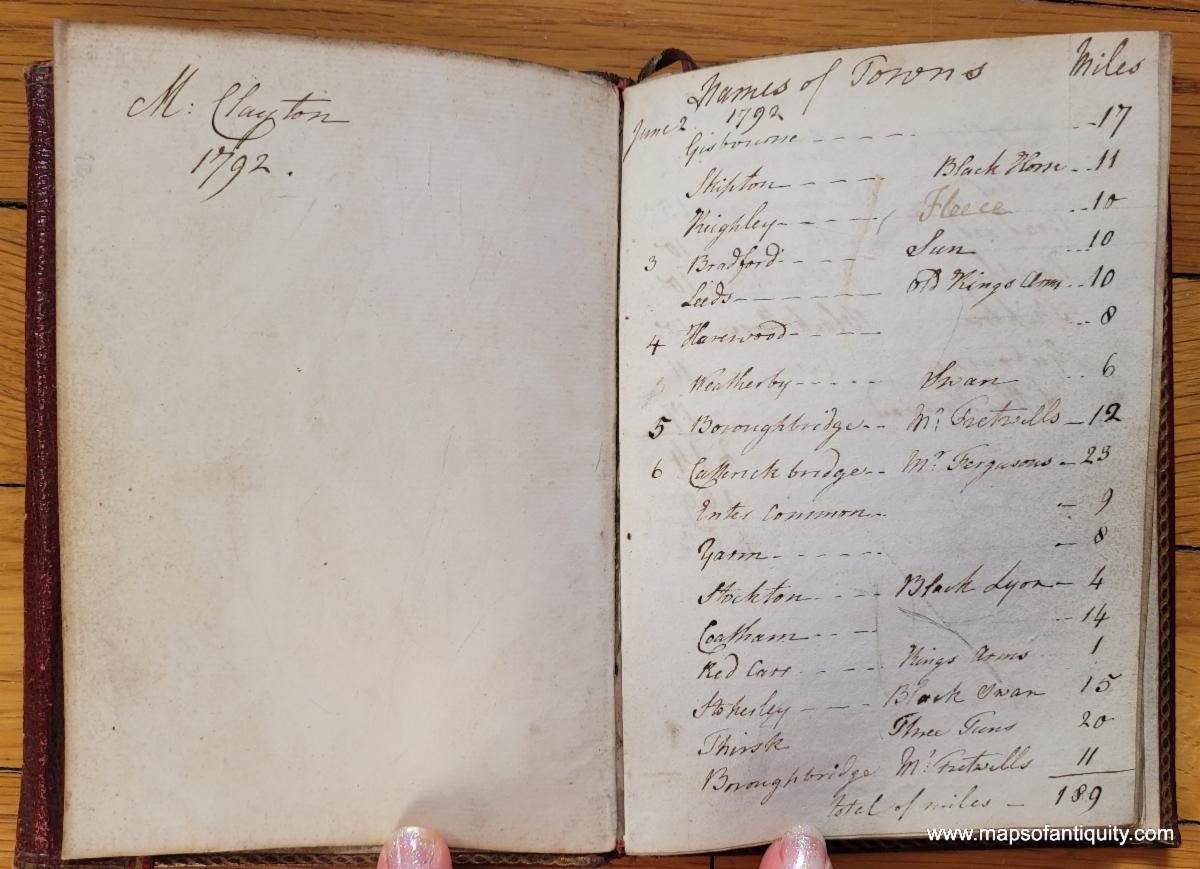 M: Clayton
1792.
Names of Towns Miles
June 2 1792
Gisbourne - - - - - 17
Skipton - - - - Black Horse - - 11
Kighley - - - - - Fleece - - 10
3 Bradford - - - - Sun - - 10
Leeds - - - - - - Old Kings Arms - - 10
4 Harewood - - - - - - 8
Weatherby - - - - - Swan - - 6
5 Boroughbridge - - Mr Fretwells - 12
6 Catterick bridge - - Mr Fergusons - 23
Enter Common - - 9
Yarm - - - - - - - 8
Stockton - - - - Black Lyon - 4
Coatham - - - - - - 14
Red Cars - - - - Kings Arms 1
Stokesley - - - - Black Swan 15
Thirsk Three Tuns 20
Boroughbridge Mr Fretwells 11
total of miles - 189
www.mapsofantiquity.com